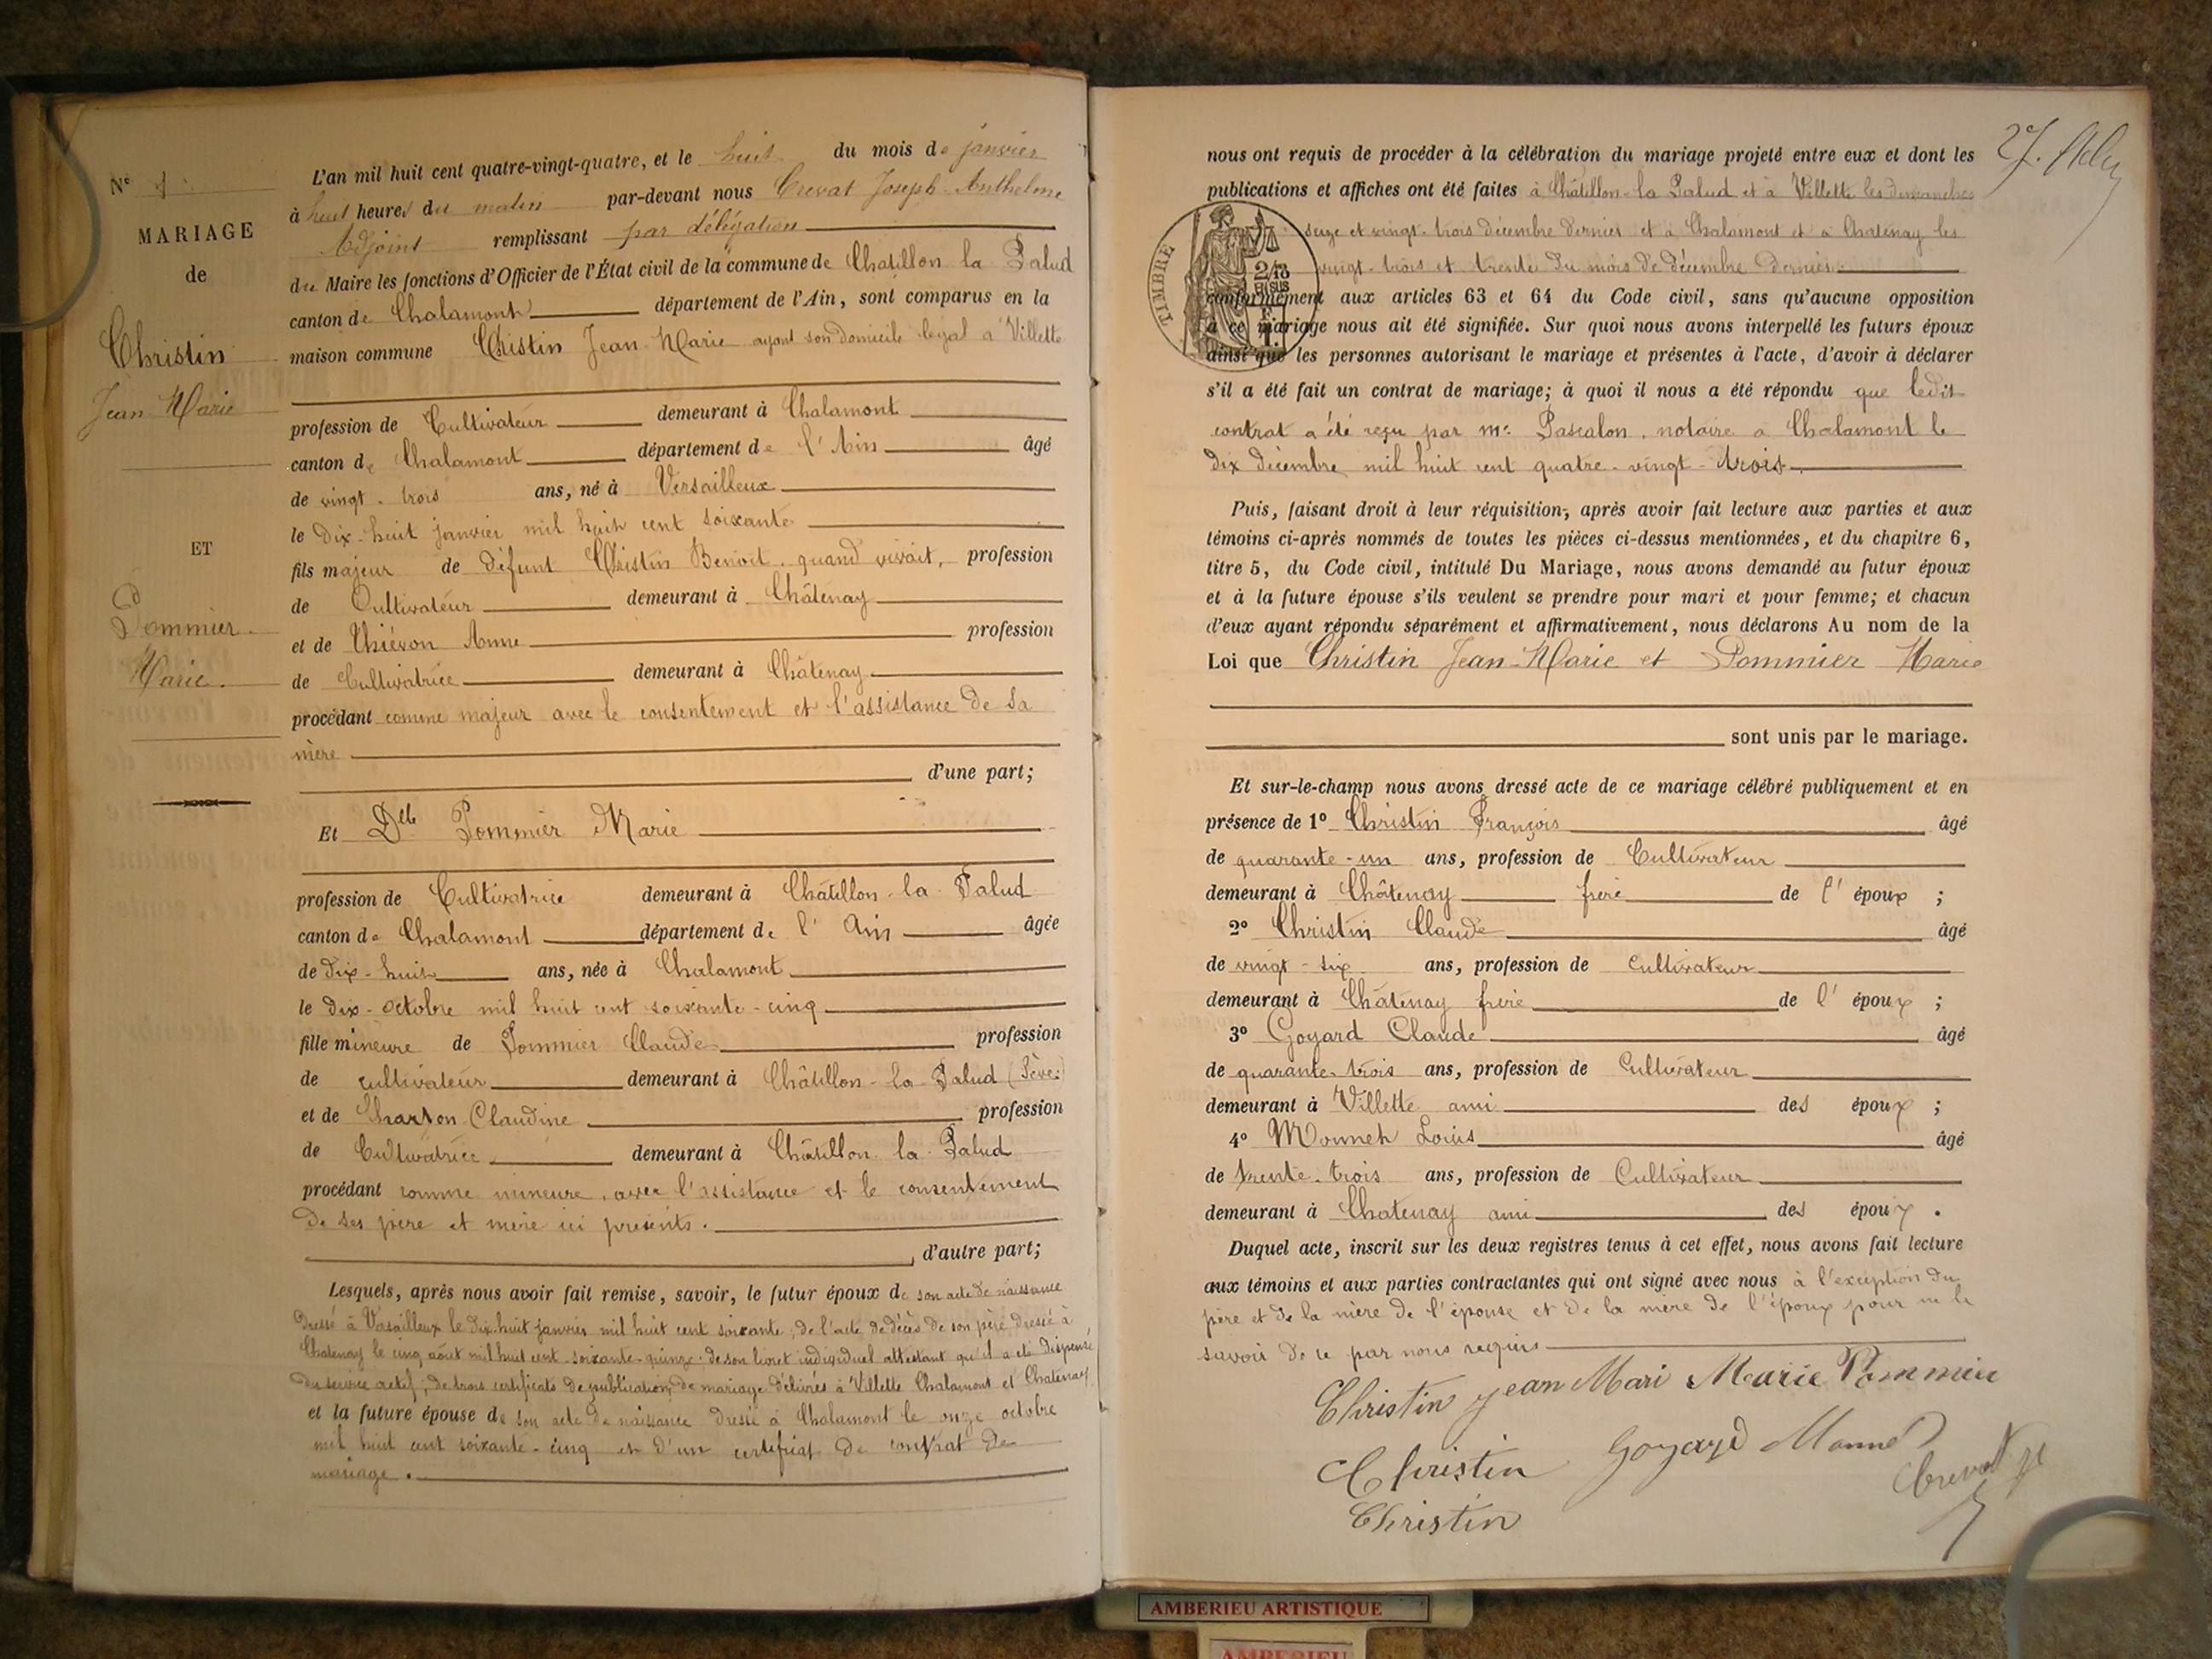 N° 1
MARIAGE
de
Christin
Jean Marie
ET
Pommier
Marie.
L'an mil huit cent quatre-vingt-quatre, et le huit du mois de janvier
à huit heures du matin par-devant nous Crevat Joseph Anthelme
Adjoint remplissant par délégation
du Maire les fonctions d'Officier de l'État civil de la commune de Chatillon la Palud
canton de Chalamont département de l'Ain, sont comparus en la
maison commune Christin Jean-Marie ayant son domicile légal à Villette
profession de Cultivateur demeurant à Chalamont
canton de Chalamont département de l'Ain âgé
de vingt-trois ans, né à Versailleux
le dix-huit janvier mil huit cent soixante
fils majeur de défunt Christin Benoit quand vivait, profession
de Cultivateur demeurant à Châtenay
et de Thiévon Anne profession
de Cultivatrice demeurant à Châtenay
procédant comme majeur avec le consentement et l'assistance de sa
mère
d'une part;
Et Dlle Pommier Marie
profession de Cultivatrice demeurant à Châtillon-la-Palud
canton de Chalamont département de l'Ain âgée
de dix-huit ans, née à Chalamont
le dix-octobre mil huit cent soixante-cinq
fille mineure de Pommier Claude profession
de cultivateur demeurant à Châtillon-la-Palud
et de Charton Claudine profession
de Cultivatrice demeurant à Châtillon-la-Palud
procédant comme mineure, avec l'assistance et le consentement
de ses père et mère ici présents.
d'autre part;
Lesquels, après nous avoir fait remise, savoir, le futur époux de son acte de naissance
dressé à Versailleux le dix huit janvier mil huit cent soixante, de l'acte de décès de son père dressé à
Chatenay le cinq août mil huit cent soixante-quinze; de son livret individuel attestant qu'il a été dispensé
du service actif; de trois certificats de publication de mariage délivrés à Villette Chalamont et Chatenay
et la future épouse de son acte de naissance dressé à Chalamont le onze octobre
mil huit cent soixante-cinq et d'un certificat de contrat de
mariage.
nous ont requis de procéder à la célébration du mariage projeté entre eux et dont les
publications et affiches ont été faites à Châtillon-la Palud et à Villette les dimanches
seize et vingt-trois décembre dernier et à Chalamont et à Chatenay les
vingt-trois et trente du mois de décembre dernier
TIMBRE
conformément aux articles 63 et 64 du Code civil, sans qu'aucune opposition
à ce mariage nous ait été signifiée. Sur quoi nous avons interpellé les futurs époux
ainsi que les personnes autorisant le mariage et présentes à l'acte, d'avoir à déclarer
s'il a été fait un contrat de mariage; à quoi il nous a été répondu que ledit
contrat a été reçu par Me Pascalon, notaire à Chalamont le
dix décembre mil huit cent quatre-vingt-trois.
Puis, faisant droit à leur réquisition, après avoir fait lecture aux parties et aux
témoins ci-après nommés de toutes les pièces ci-dessus mentionnées, et du chapitre 6,
titre 5, du Code civil, intitulé Du Mariage, nous avons demandé au futur époux
et à la future épouse s'ils veulent se prendre pour mari et pour femme; et chacun
d'eux ayant répondu séparément et affirmativement, nous déclarons Au nom de la
Loi que Christin Jean-Marie et Pommier Marie
sont unis par le mariage.
Et sur-le-champ nous avons dressé acte de ce mariage célébré publiquement et en
présence de 1° Christin François âgé
de quarante-un ans, profession de Cultivateur
demeurant à Châtenay frère de l'époux ;
2° Christin Claude âgé
de vingt-six ans, profession de Cultivateur
demeurant à Châtenay frère de l'époux ;
3° Goyard Claude âgé
de quarante-trois ans, profession de Cultivateur
demeurant à Villette ami des époux ;
4° Monnet Louis âgé
de trente-trois ans, profession de Cultivateur
demeurant à Chatenay ami des époux .
Duquel acte, inscrit sur les deux registres tenus à cet effet, nous avons fait lecture
aux témoins et aux parties contractantes qui ont signé avec nous à l'exception du
père et de la mère de l'épouse et de la mère de l'époux pour ne le
savoir de ce par nous requis
Christin jean Mari Marie Pommier
Christin Goyard Monnet
Crevat
Christin
AMBERIEU ARTISTIQUE
AMBERIEU